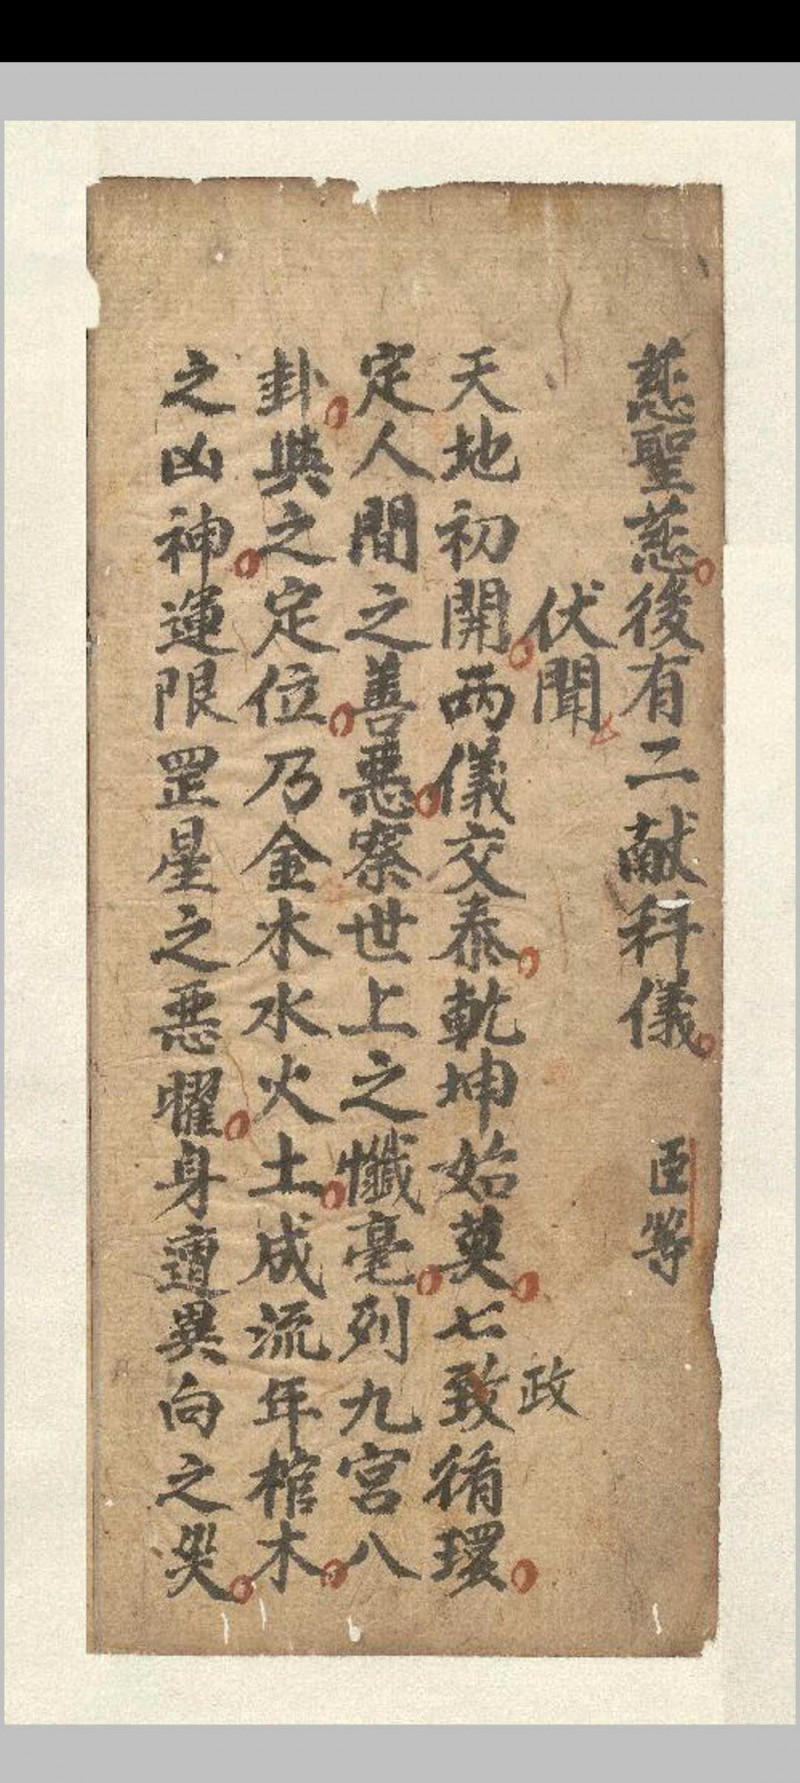 慈聖慈後有二献科儀 臣等
伏聞
天地初開两儀交泰乾坤始奠七致循環
政
定人間之善惡察世上之懺毫列九宮八
卦與之定位乃金木水火土成流年棺木
之凶神運限罡星之惡曜身遭異向之災